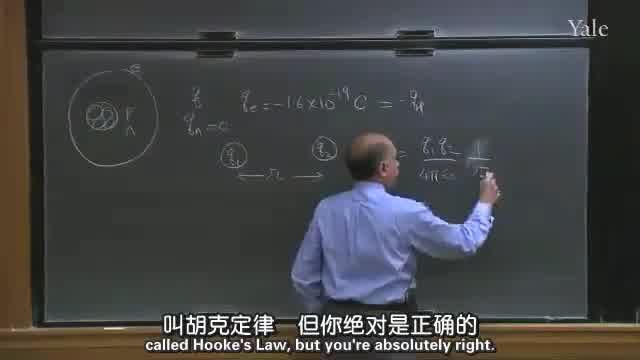 Yale
e
q
qₑ = -1.6 × 10⁻¹⁹ C = -qₚ
P
n
qₙ = 0
q₁ q₂ = q₁ q₂ / 4πε₀ 1 / r²
← r →
叫胡克定律 但你绝对是正确的
called Hooke's Law, but you're absolutely right.